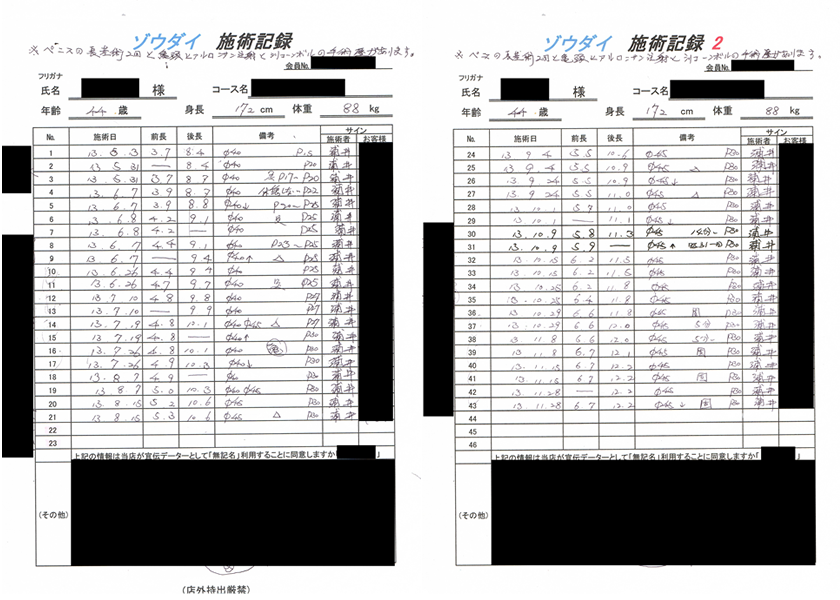 ゾウダイ 施術記録
※ペニスの長茎術2回と亀頭ヒアルロン注射とシリコンボールの手術歴があります。
会員No.
フリガナ
氏名 様 コース名
年齢 44 歳 身長 172 cm 体重 88 kg
No. 施術日 前長 後長 備考 サイン
施術者 お客様
1 13. 5. 3 3.7 8.4 φ40 P15 蒲井
2 13 5 31 — 8.4 φ40 P20 蒲井
3 13. 5.31 3.7 8.7 φ40 P17~P20 蒲井
4 13. 6. 7 3.9 8.7 φ40 P22 蒲井
5 13. 6. 7 3.9 8.8 φ40↓ P20~P25 蒲井
6 13. 6.8 4.2 9.1 φ40 P25 蒲井
7 13. 6.8 4.2 — φ40 P25 蒲井
8 13. 6. 17 4.4 9.1 φ40 P23~P25 蒲井
9 13. 6. 17 — 9.4 φ40↑ △ P25 蒲井
10 13. 6.26 4.4 9.4 φ40 P25 蒲井
11 13. 6.26 4.7 9.7 φ40 P25 蒲井
12 13. 7 10 4.8 9.8 φ40 P27 蒲井
13 13. 7. 10 — 9.9 φ40 P27 蒲井
14 13. 7. 19 4.8 10.1 φ40 φ45 △ P27 蒲井
15 13. 7. 19 4.8 — φ40↑ P30 蒲井
16 13. 7. 26 4.8 10.1 φ40 P30 蒲井
17 13. 7. 26 4.9 10.3 φ40↓ P30 蒲井
18 13. 8 7 4.9 — φ40 P30 蒲井
19 13. 8 7 5.0 10.3 φ40 φ45 P30 蒲井
20 13. 8 15 5.2 10.6 φ45 P30 蒲井
21 13 8 15 5.3 10.6 φ45 △ P30 蒲井
22
23
上記の情報は当店が宣伝データーとして「無記名」利用することに同意しますか 」
(その他)
(店外持出厳禁)
ゾウダイ 施術記録 2
※ペニスの長茎術2回と亀頭ヒアルロン注射とシリコンボールの手術歴があります。
会員No.
フリガナ
氏名 様 コース名
年齢 44 歳 身長 172 cm 体重 88 kg
No. 施術日 前長 後長 備考 サイン
施術者 お客様
24 13 9 4 5.5 10.6 φ45 P30 蒲井
25 13 9 4 5.5 10.9 φ45 △ P30 蒲井
26 13. 9 24 5.5 10.9 φ45↓ P30 蒲井
27 13. 9 24 5.5 11.0 φ45 △ P30 蒲井
28 13. 10. 1 5.7 11.0 φ45 P30 蒲井
29 13. 10. 1 — 11.1 φ45↓ P30 蒲井
30 13. 10. 9 5.8 11.3 φ45 14分~ P30 蒲井
31 13. 10. 9 5.9 — φ45↑ P30 蒲井
32 13. 10.15 6.2 11.5 φ45 P30 蒲井
33 13. 10.15 6.2 11.5 φ45 P30 蒲井
34 13. 10.25 6.2 11.8 φ45 P30 蒲井
35 13. 10.25 6.4 11.8 φ45 P30 蒲井
36 13. 10 29 6.6 11.8 φ45 困 P30 蒲井
37 13. 10.29 6.6 12.0 φ45 5分 P30 蒲井
38 13 11 8 6.6 12.0 φ45 5分 P30 蒲井
39 13. 11 8 6.7 12.1 φ45 困 P30 蒲井
40 13. 11.15 6.7 12.2 φ45 P30 蒲井
41 13. 11.15 6.7 12.2 φ45 困 P30 蒲井
42 13. 11.28 12.2 φ45 P30 蒲井
43 13. 11.28 6.7 12.2 φ45↓ 困 P30 蒲井
44
45
46
上記の情報は当店が宣伝データーとして「無記名」利用することに同意しますか「 」
(その他)